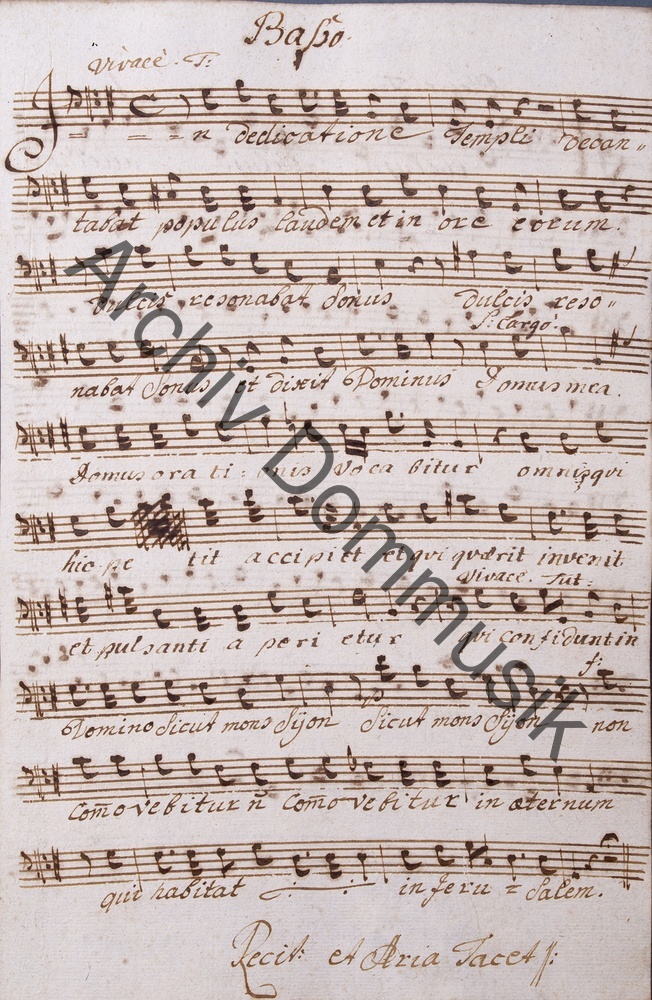 Baßo.
Vivace. T:
In dedicatione Templi decan=
tabat populus laudem et in ore eorum.
dulcis resonabat Sonus dulcis reso=
S: Largo.
nabat Sonus et dixit Dominus Domus mea.
Domus orati:onis vocabitur omnis qui
hic petit accipi et et qui quærit invenit
Vivace. Tut:
et pulsanti aperietur qui confidunt in
f:
Domino Sicut mons Sijon Sicut mons Sijon non
com̄ovebitur n̄ com̄ovebitur in æternum
qui habitat in Jeru=Salem.
Recit: et Aria Tacet
Archiv Dommusik